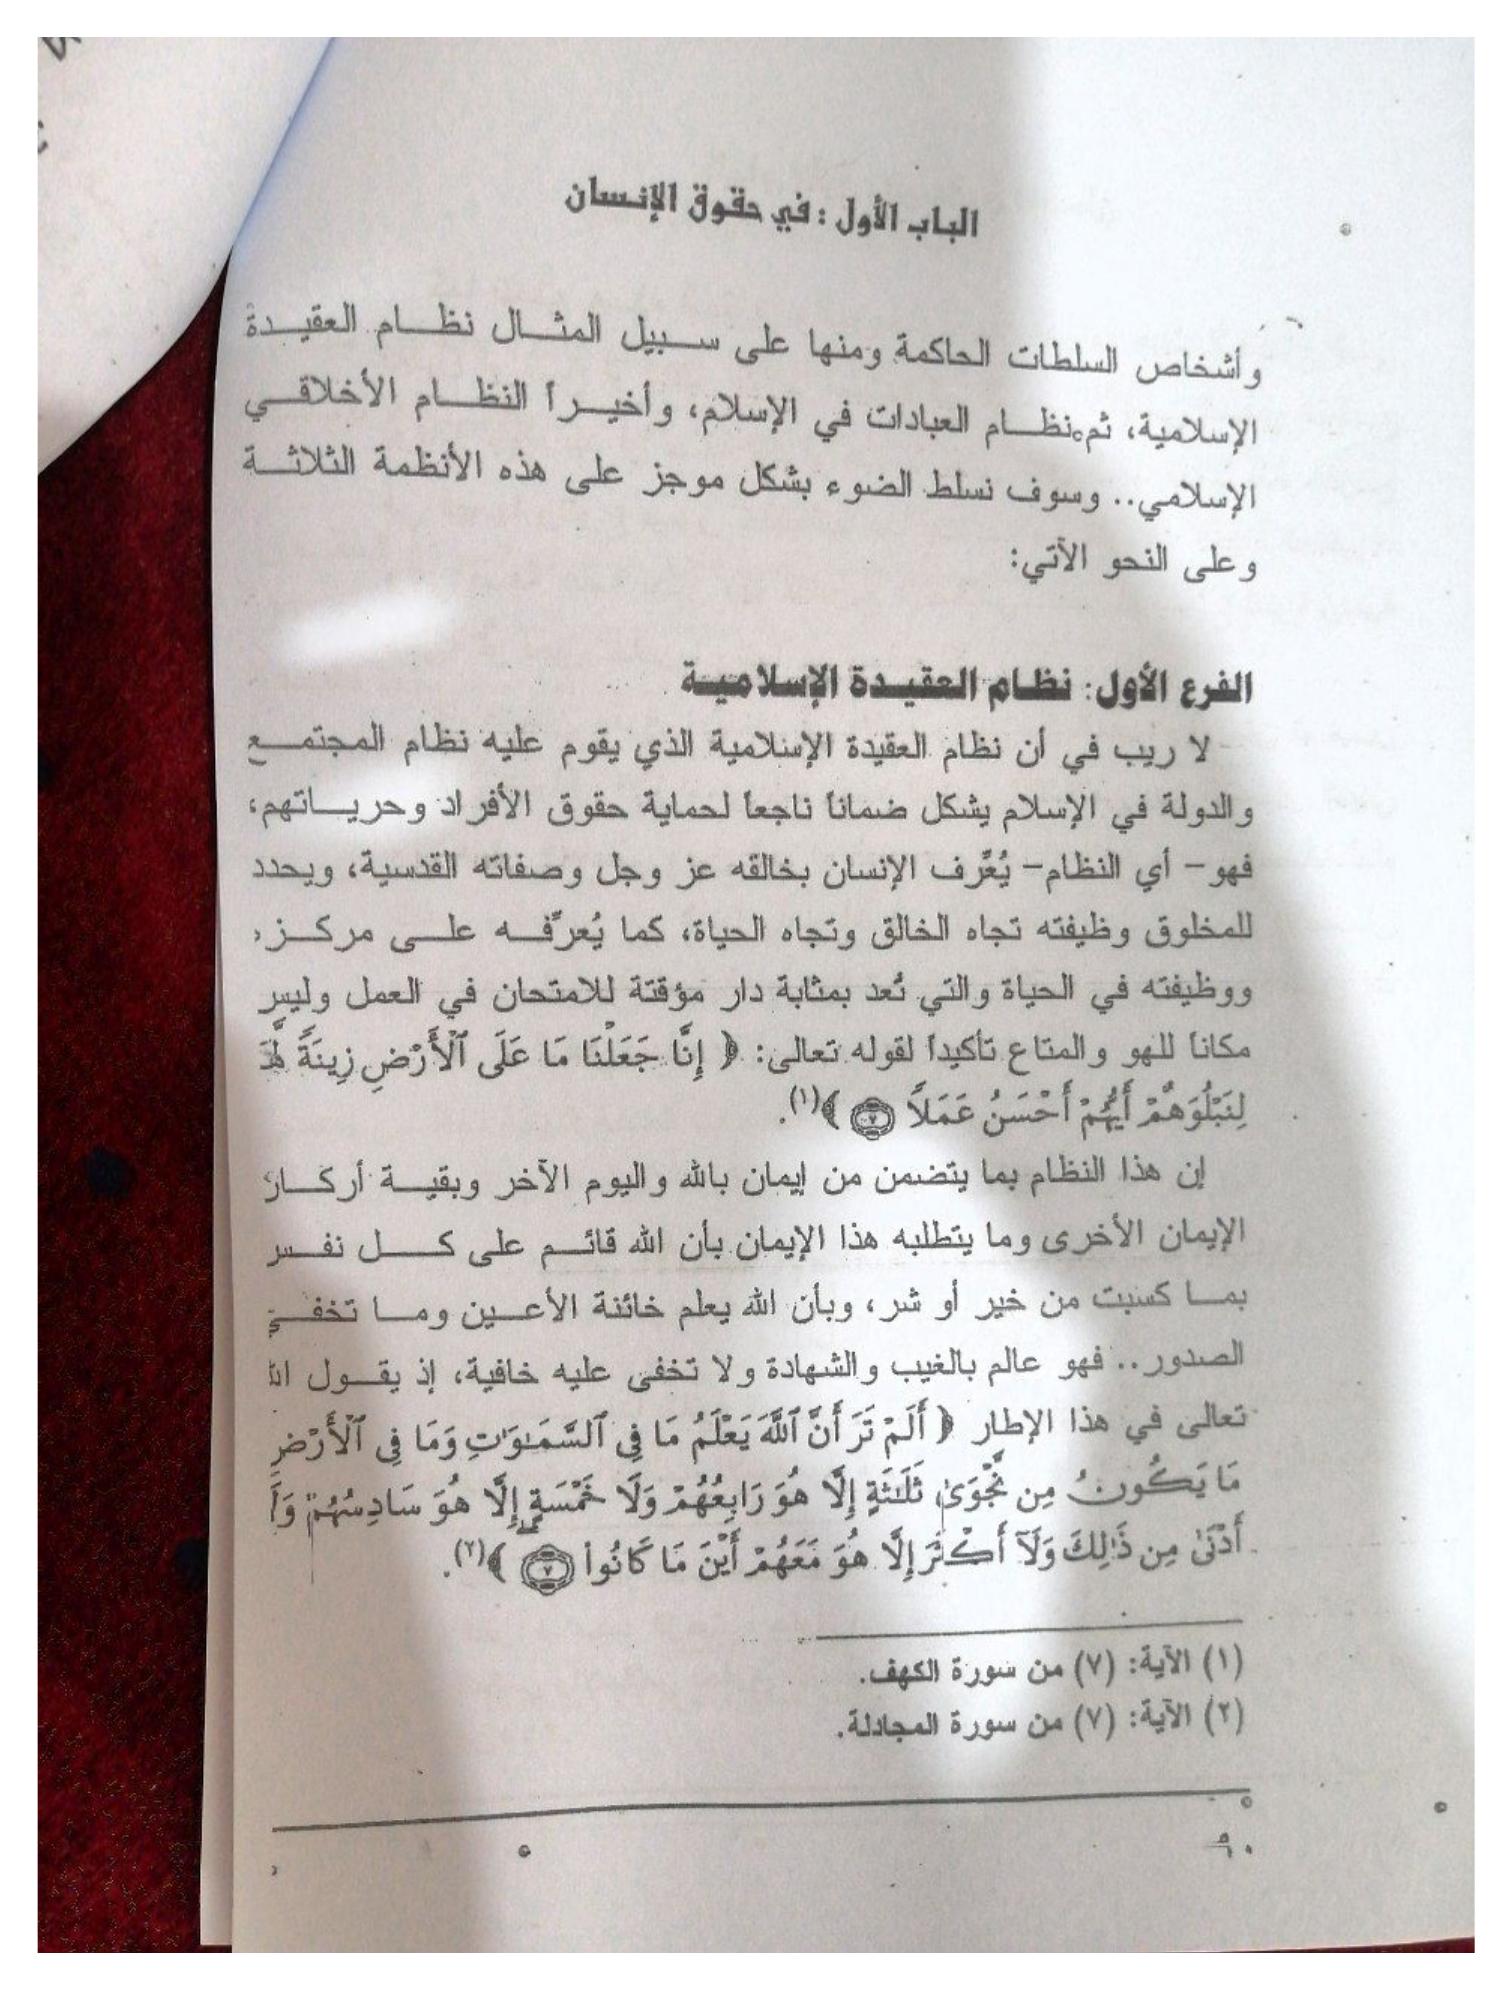 الباب الأول : في حقوق الإنسان
وأشخاص السلطات الحاكمة ومنها على سبيل المثال نظام العقيدة
الإسلامية، ثم نظام العبادات في الإسلام، وأخيراً النظام الأخلاقي
الإسلامي.. وسوف نسلط الضوء بشكل موجز على هذه الأنظمة الثلاثة
وعلى النحو الآتي:
الفرع الأول: نظام العقيدة الإسلامية
لا ريب في أن نظام العقيدة الإسلامية الذي يقوم عليه نظام المجتمع
والدولة في الإسلام يشكل ضماناً ناجعاً لحماية حقوق الأفراد وحرياتهم،
فهو- أي النظام- يُعَّرف الإنسان بخالقه عز وجل وصفاته القدسية، ويحدد
للمخلوق وظيفته تجاه الخالق وتجاه الحياة، كما يُعرِّفه على مركزه
ووظيفته في الحياة والتي تُعد بمثابة دار مؤقتة للامتحان في العمل وليس
مكاناً للهو والمتاع تأكيداً لقوله تعالى: ﴿ إِنَّا جَعَلْنَا مَا عَلَى ٱلْأَرْضِ زِينَةً لَّهَا
لِنَبْلُوَهُمْ أَيُّهُمْ أَحْسَنُ عَمَلاً ۝٧ ﴾(١).
إن هذا النظام بما يتضمن من إيمان بالله واليوم الآخر وبقية أركان
الإيمان الأخرى وما يتطلبه هذا الإيمان بأن الله قائم على كل نفس
بما كسبت من خير أو شر، وبأن الله يعلم خائنة الأعين وما تخفي
الصدور.. فهو عالم بالغيب والشهادة ولا تخفى عليه خافية، إذ يقول الله
تعالى في هذا الإطار ﴿ أَلَمْ تَرَ أَنَّ ٱللَّهَ يَعْلَمُ مَا فِى ٱلسَّمَـٰوَٰتِ وَمَا فِى ٱلْأَرْضِ
مَا يَكُونُ مِن نَّجْوَىٰ ثَلَـٰثَةٍ إِلَّا هُوَ رَابِعُهُمْ وَلَا خَمْسَةٍ إِلَّا هُوَ سَادِسُهُمْ وَلَآ
أَدْنَىٰ مِن ذَٰلِكَ وَلَآ أَكْثَرَ إِلَّا هُوَ مَعَهُمْ أَيْنَ مَا كَانُوا۟ ۝٧ ﴾(٢).
(١) الآية: (٧) من سورة الكهف.
(٢) الآية: (٧) من سورة المجادلة.